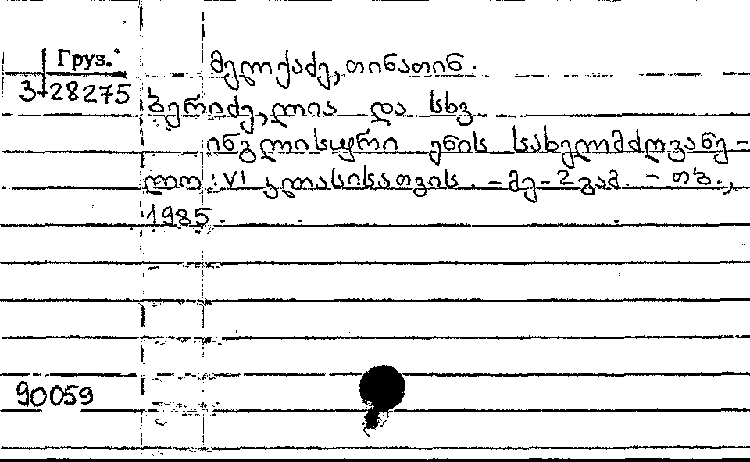 Груз.
3-28275
მელქაძე, თინათინ.
ბერიძე, ლია და სხვ.
ინგლისური ენის სახელმძღვანე-
ლო: VI კლასისათვის. - მე-2 გამ. - თბ.,
1985.
90059